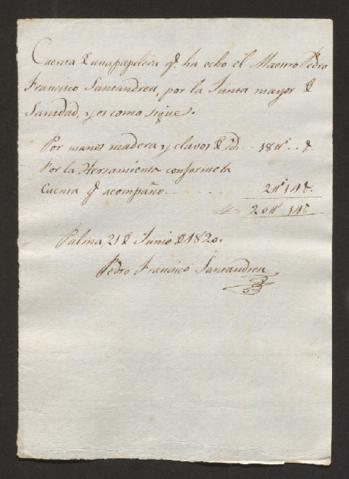 Cuenta de una papelera qe. ha echo el Maestro Pedro
Francisco Santandreu, por la Junta mayor de
Sanidad, y es como sigue.
Por manos madera y clavos de id... 18 tt. . . ₰
Por la Herramienta conforme la
Cuenta qe acompaño . . . . . . 2 tt 14 s.
20 tt 14 s
Palma, 21 de Junio de 1820.
Pedro Francisco Santandreu